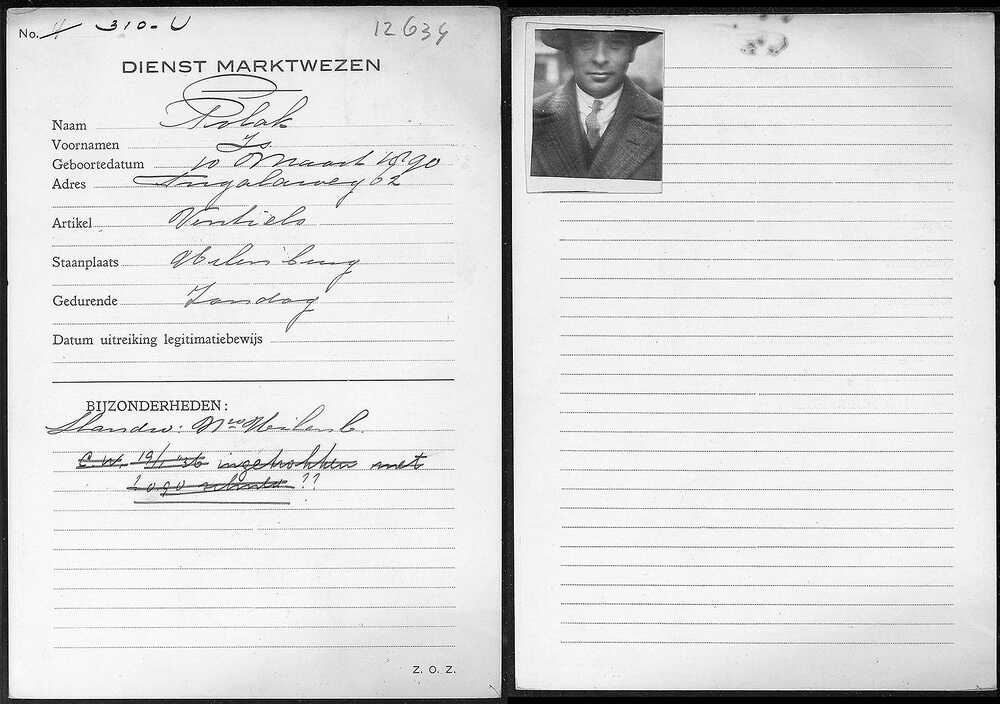 No. 310-U
12634
DIENST MARKTWEZEN
Naam Polak
Voornamen Is
Geboortedatum 10 Maart 1890
Adres 62
Artikel
Staanplaats Uilenburg
Gedurende Zondag
Datum uitreiking legitimatiebewijs
BIJZONDERHEDEN:
Standw:
C.W. 19/1 '36 ingetrokken met
??
Z. O. Z.